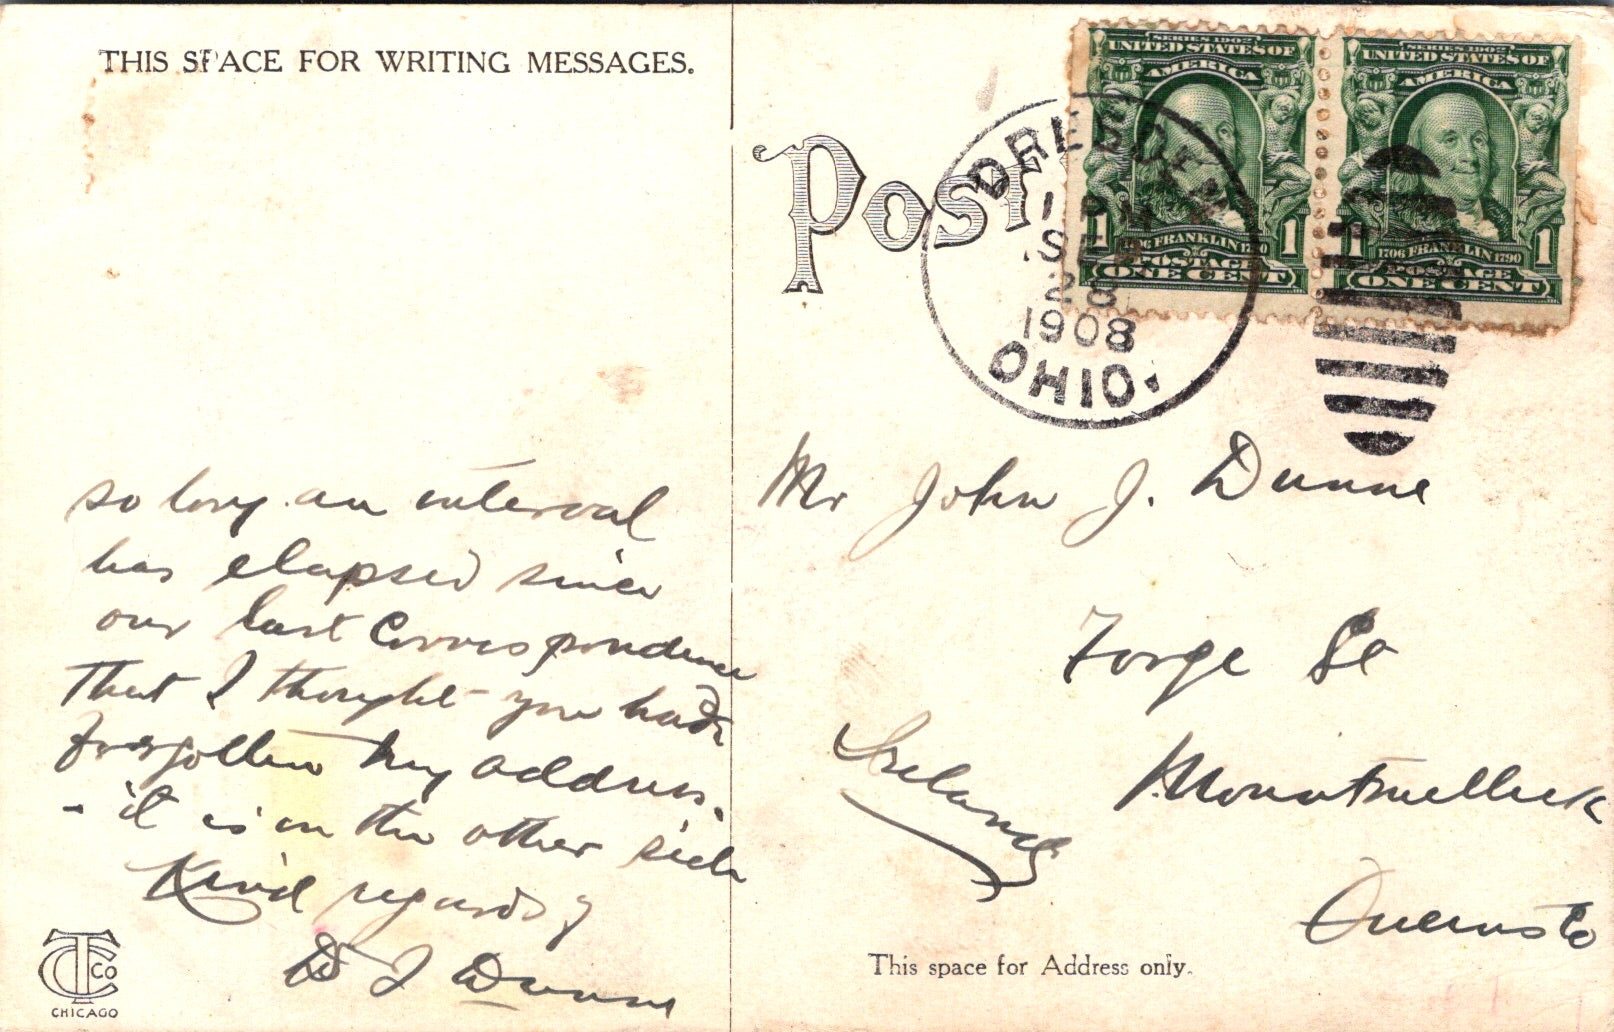 THIS SPACE FOR WRITING MESSAGES.
so long an interval
has elapsed since
our last Correspondence
That I thought you had
forgotten my address.
- it is on the other side
Kind regards
D J Dunne
TC Co
CHICAGO
POST
DRESDEN
1 PM
SEP
28
1908
OHIO.
SERIES 1902
UNITED STATES OF
AMERICA
FRANKLIN
POSTAGE
1 1
ONE CENT
SERIES 1902
UNITED STATES OF
AMERICA
1706 FRANKLIN 1790
POSTAGE
1 1
ONE CENT
Mr John J. Dunne
Forge St
Mountmellick
Queens Co
Ireland
This space for Address only.